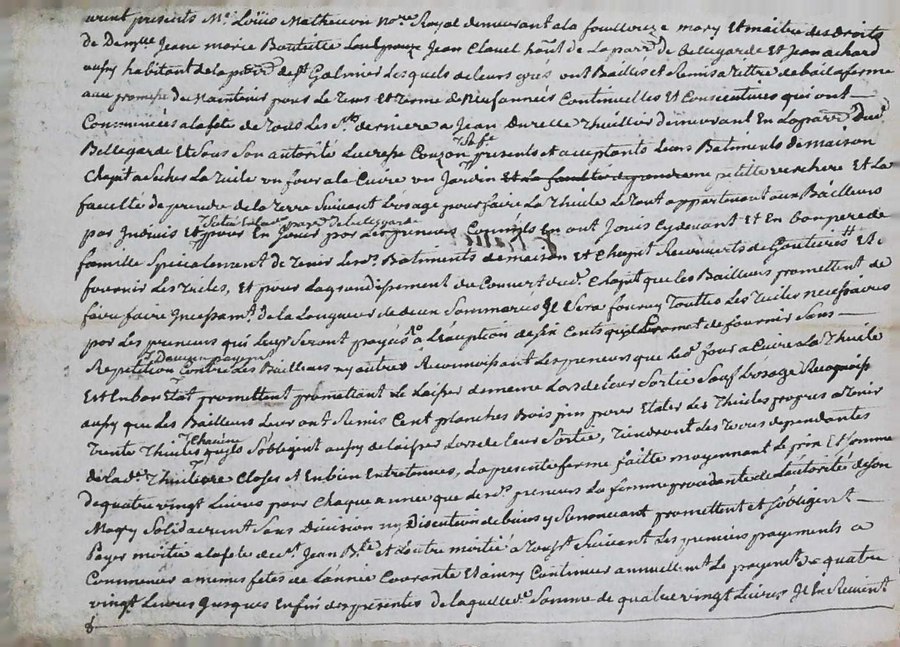 urent presents Me Loüis Matheuon nore Royal demeurant a la fouillouze mary Et maitre des Droits
de Demlle Jeane marie Bautiere Jean Clauel habnt de La parre de Bellegarde Et Jean achard
aussy habitant de la parre de st Galmier Lesquels de leurs grés ont Baillés et Remis a titre de bail a ferme
aue promesse du maintenir pour Le tems Et terme de Neuf années Continuelles Et Consecutives qui ont
Commencées a la fete de tous Les Sts derniere a Jean Durelle Thuillier demeurant En La parre dud.
Bellegarde Et Sous Son autorité Lucresse Couzon Sa fe presents et acceptants Leurs Batiments de maison
Chapit a Secher La tuile un four a la Cuire un Jardin Et La faculté de prendre un petitte verchere Et La
faculté de prendre de la terre Suivant L'usage pour faire La Thuile Le tout appartenant aux Bailleurs
par Indivis Et Situé En lad. parre de Bellegarde
pour En Jouir par Les preneurs Comme ils En ont Jouis Cy devant Et En bon pere de
famille Specialement de tenir Lesds Batiments de maison Et Chapit Recouverts de Goutieres Et
fournir Les tuiles, Et pour L'agrandissement du Couvert dud. Chapit que les Bailleurs promettent de
faire faire Incessamt de la Longueur de deux Sommarüs Il Sera fourny touttes Les tuiles necessaires
par Les preneurs qui Leurs Seront payées a L'exeption de Six Cents quils promet de fournir Sans
Repetition Contre Les Bailleurs ny autres Reconnoissant Les preneurs que Led. four a Cuire La Thuile
Est En bon Etat promettent promettant Le Laisser de meme Lors de leur Sortie Sauf L'usage
aussy que Les Bailleurs Leur ont Remis Cent planches Bois pin pour Etaler Les Thuiles propres a tenir
trente Thuiles Chacune quils S'obligent aussy de laisser Lors de leur Sortie, tiendront Les terres dependantes
de La de. Thuiliere Closes Et En bien Entretenües, La presente ferme faitte moyennant Le prix Et Somme
De quatre vingt Livres pour Chaque année que Lesds preneurs La femme procedante de L'autorité de Son
Mary Solidairement Sans Division ny Discution de biens y Renonceant promettent et S'obligent
Payer moitié a la fete de st Jean Bte et L'autre moitié a Toust Suivant Les premiers payements a
Commencer a memes fetes de L'année Courante Et ainsy Continuer annuellemt Le payement de quatre
vingt Livres Jusques En fin des presentes de laquelle de. Somme de quatre vingt Livres Il En Revient